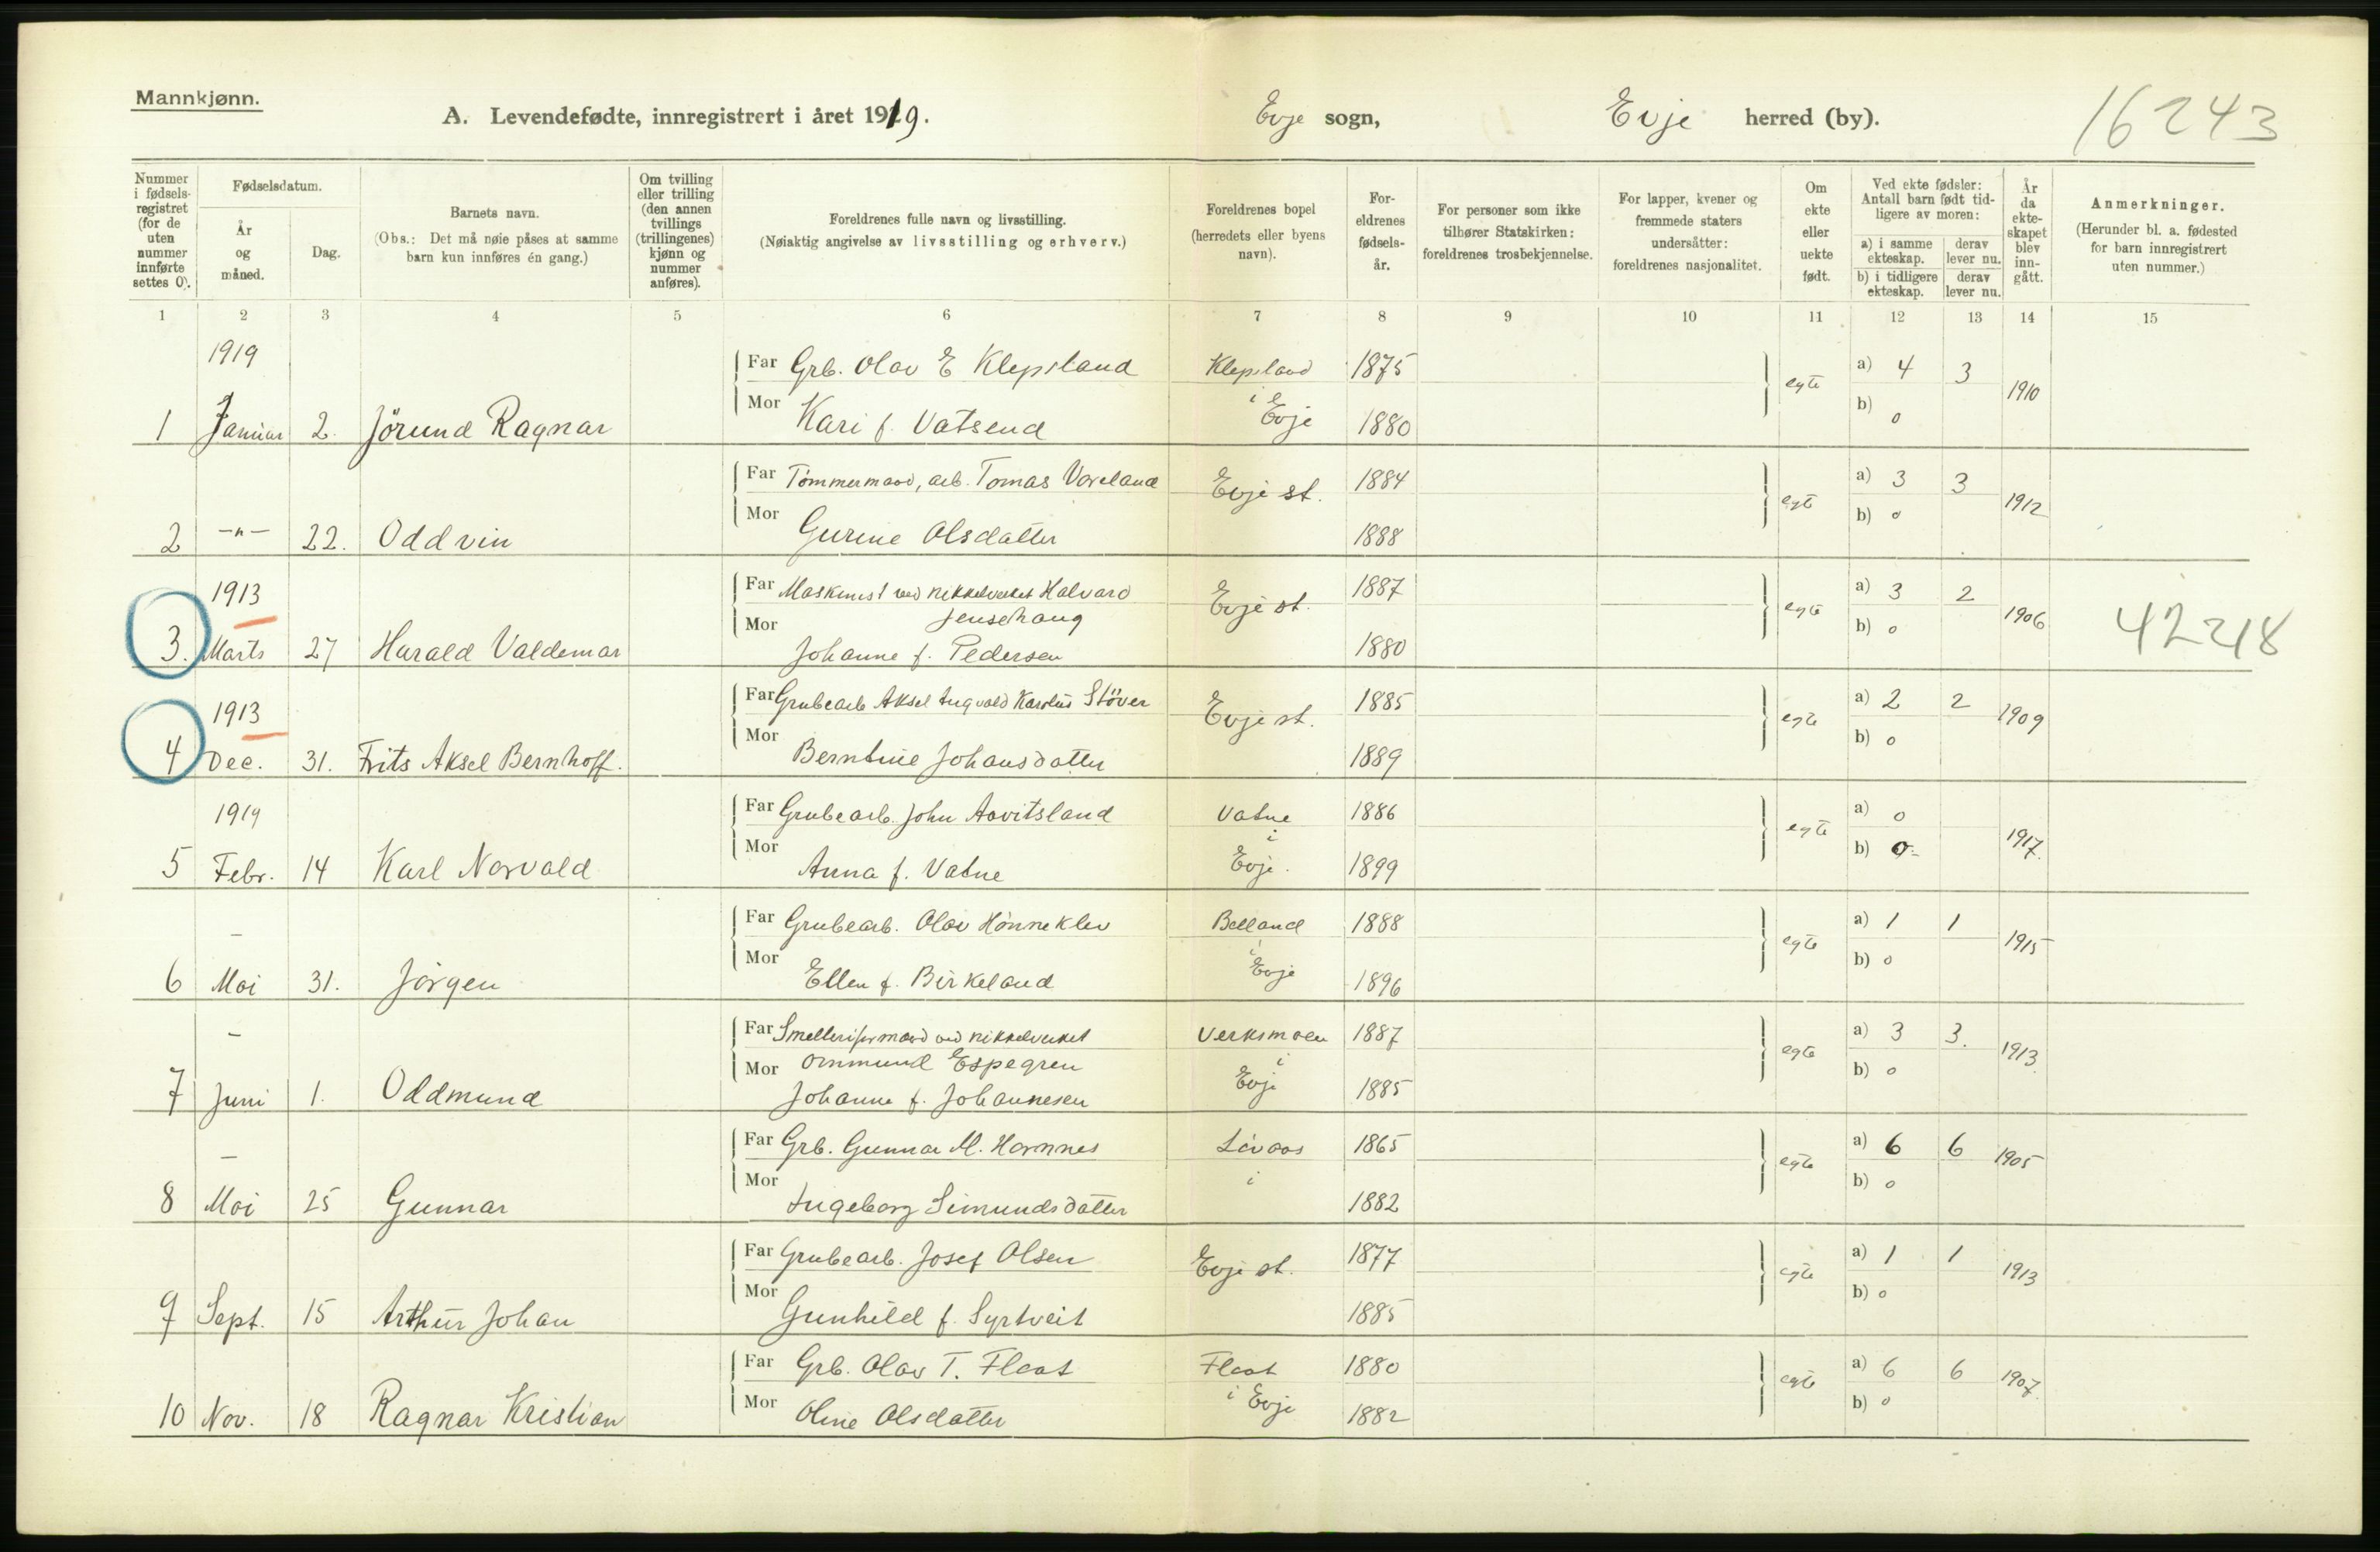 Mannkjønn.
A. Levendefødte, innregistrert i året 1919.
Evje sogn, Evje herred (by). 16243
Nummer i fødselsregistret (for de uten nummer innførte settes 0).
Fødselsdatum.
År og måned.
Dag.
Barnets navn.
(Obs.: Det må nøie påses at samme barn kun innføres én gang.)
Om tvilling eller trilling (den annen tvillings (trillingenes) kjønn og nummer anføres).
Foreldrenes fulle navn og livsstilling.
(Nøiaktig angivelse av livsstilling og erhverv.)
Foreldrenes bopel (herredets eller byens navn).
Foreldrenes fødselsår.
For personer som ikke tilhører Statskirken: foreldrenes trosbekjennelse.
For lapper, kvener og fremmede staters undersåtter: foreldrenes nasjonalitet.
Om ekte eller uekte født.
Ved ekte fødsler: Antall barn født tidligere av moren:
a) i samme ekteskap. derav lever nu.
b) i tidligere ekteskap. derav lever nu.
År da ekteskapet blev inngått.
Anmerkninger.
(Herunder bl. a. fødested for barn innregistrert uten nummer.)
1 2 3 4 5 6 7 8 9 10 11 12 13 14 15
1919 Far Grb. Olav E Klepsland Klepsland 1875 egte a) 4 3 1910
1 Januar 2. Jörund Ragnar Mor Kari f. Vatsend i Evje 1880 b) 0
Far Tömmermand, arb. Tomas Vareland Evje st. 1884 egte a) 3 3 1912
2 -"- 22. Oddvin Mor Gurine Olsdatter 1888 b) 0
1913 Far Maskinist ved nikkelverket Halvard Jensehaug Evje st. 1887 egte a) 3 2 1906 42218
3. Marts 27 Harald Valdemar Mor Johanne f. Pedersen 1880 b) 0
1913 Far Grubearb Aksel Ingvald Karolius Stöver Evje st. 1885 egte a) 2 2 1909
4 Dec. 31. Frits Aksel Bernhoff. Mor Berntine Johansdatter 1889 b) 0
1919 Far Grubearb. John Aavitsland Vatne 1886 egte a) 0 1917.
5 Febr. 14 Karl Norvald Mor Anna f. Vatne i Evje. 1899 b) 0
- Far Grubearb. Olav Hönneklev Belland 1888 egte a) 1 1 1915
6 Mai 31. Jörgen Mor Ellen f. Birkeland i Evje 1896 b) 0
- Far Smelteriformand ved nikkelverket Ommund Espegren Verksmoen 1887 egte a) 3 3. 1913
7 Juni 1. Oddmund Mor Johanne f. Johannesen i Evje 1885 b) 0
- Far Grb. Gunnar M. Hornnes 1865 egte a) 6 6 1905
8 Mai 25 Gunnar Mor Ingeborg Simundsdatter i 1882 b) 0
Far Grubearb. Josef Olsen Evje st. 1877 egte a) 1 1 1913
9 Sept. 15 Arthur Johan Mor Gunhild f. Syrtveit 1885 b) 0
Far Grb. Olav T. Flaat Flaat 1880 egte a) 6 6 1907.
10 Nov. 18 Ragnar Kristian Mor Oline Olsdatter i Evje 1882 b) 0